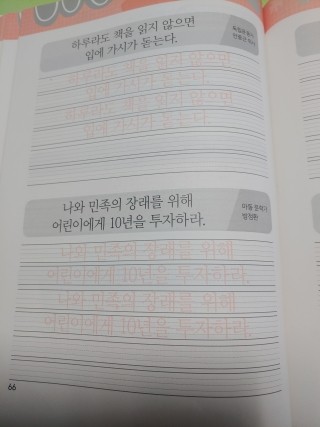 하루라도 책을 읽지 않으면
입에 가시가 돋는다.
하루라도 책을 읽지 않으면
입에 가시가 돋는다.
하루라도 책을 읽지 않으면
입에 가시가 돋는다.
나와 민족의 장래를 위해
어린이에게 10년을 투자하라.
아동 문학가
방정환
나와 민족의 장래를 위해
어린이에게 10년을 투자하라.
나와 민족의 장래를 위해
어린이에게 10년을 투자하라.
66